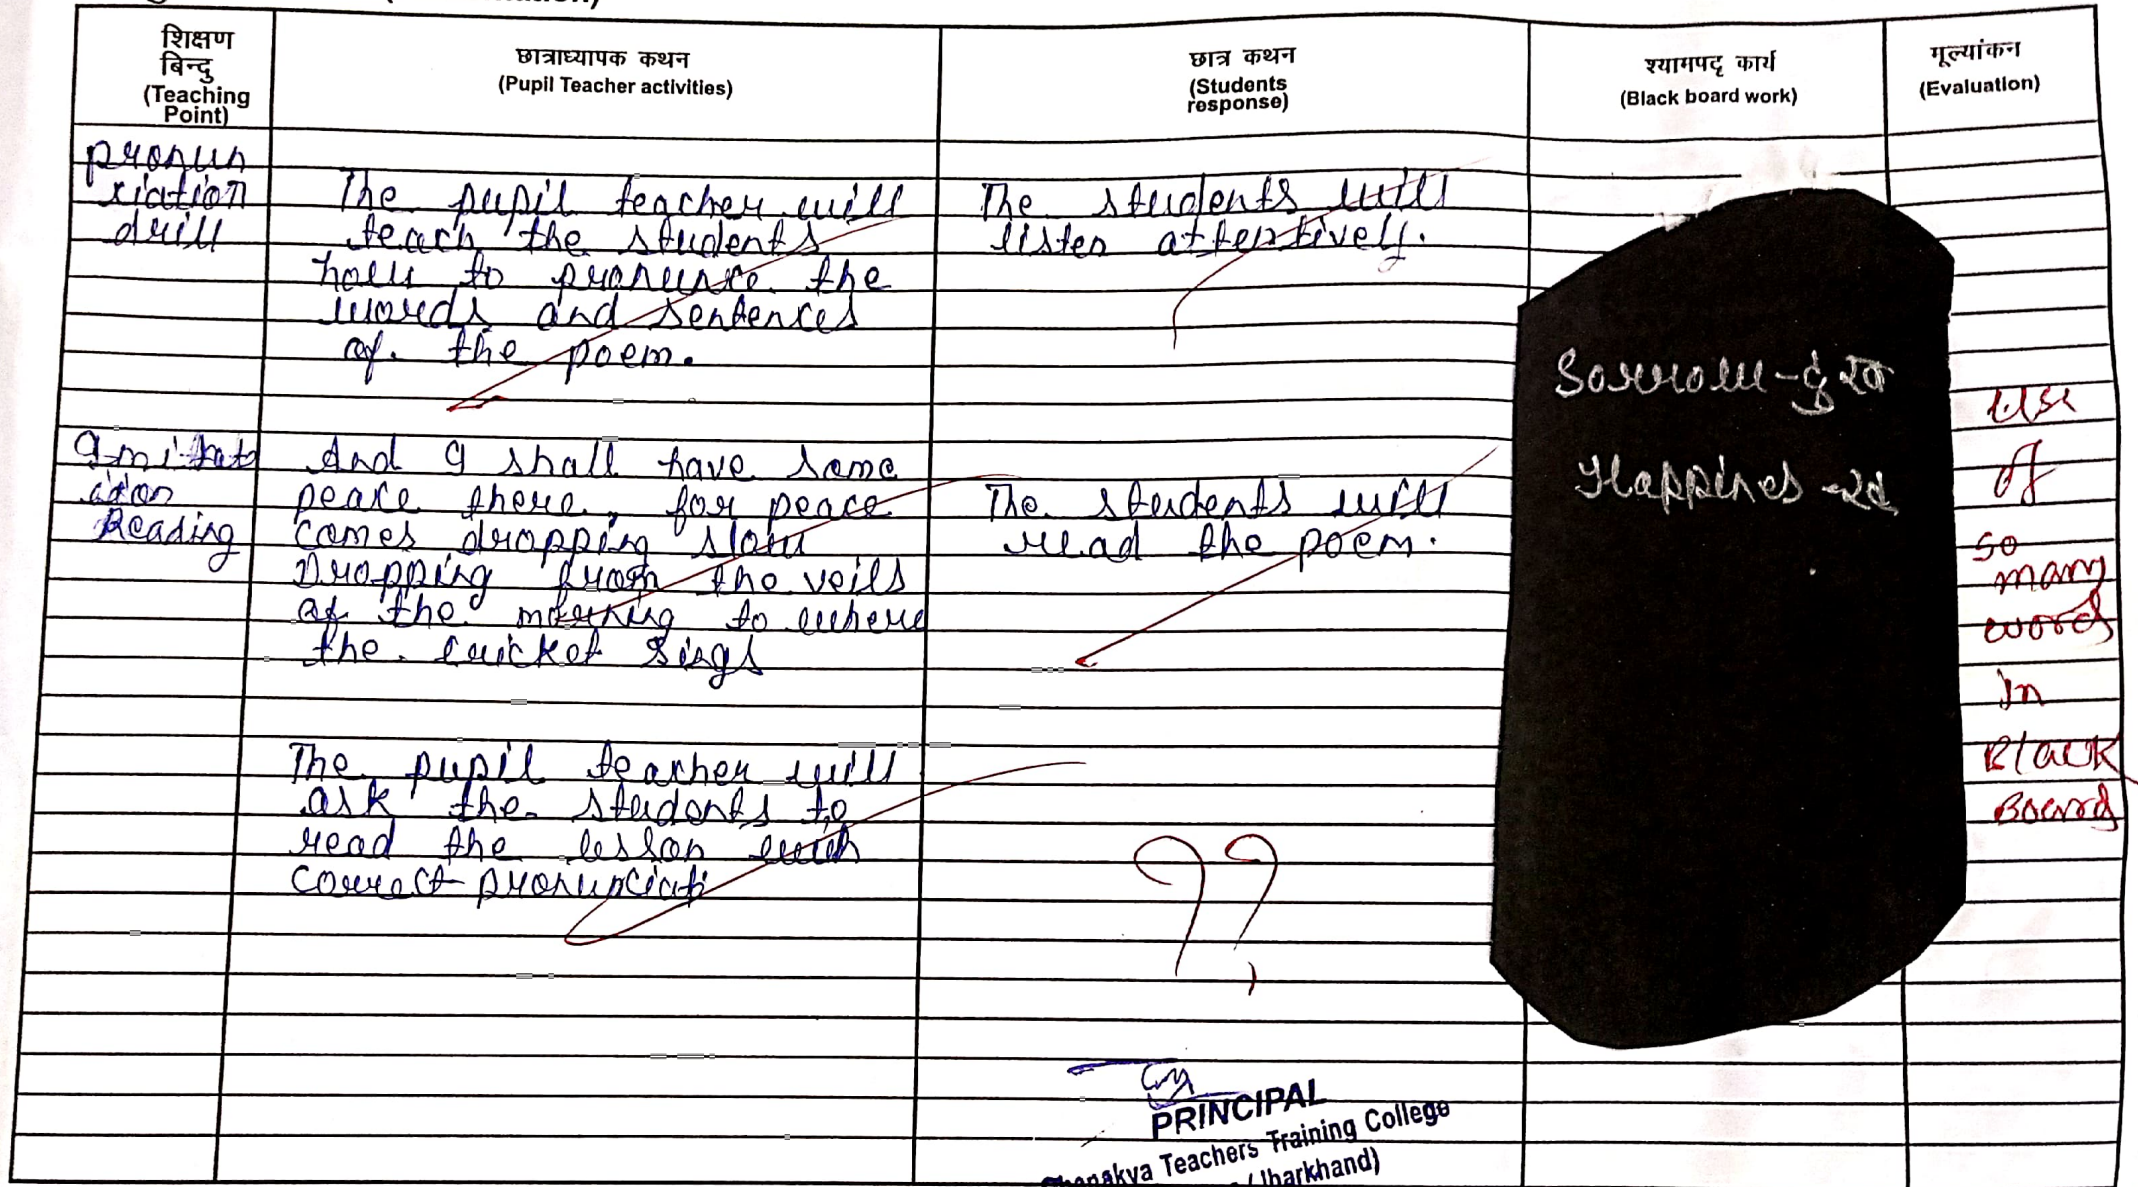 शिक्षण
बिन्दु
(Teaching
Point)
छात्राध्यापक कथन
(Pupil Teacher activities)
छात्र कथन
(Students
response)
श्यामपट्ट कार्य
(Black board work)
मूल्यांकन
(Evaluation)
pronun
ciation
drill
The pupil teacher will
teach the students
how to pronunce the
words and sentences
of the poem.
The students will
listen attentively.
Reading
And I shall have some
peace there, for peace
comes dropping slow
Dropping from the veils
of the morning to where
the cricket sings
The students will
read the poem.
The pupil teacher will
ask the students to
read the lesson with
correct pronunciati
??
Sorrow - दुख
Happines -
Use
of
so
many
word
in
Black
Board
PRINCIPAL
Teachers Training College
(Jharkhand)